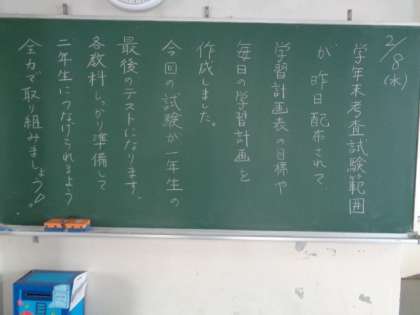 2/8(水)
学年末考査試験範囲
が昨日配布されて
学習計画表の目標や
毎日の学習計画を
作成しました。
今回の試験が一年生の
最後のテストになります。
各教科しっかり準備して
二年生につなげられるよう
全力で取り組みましょう!